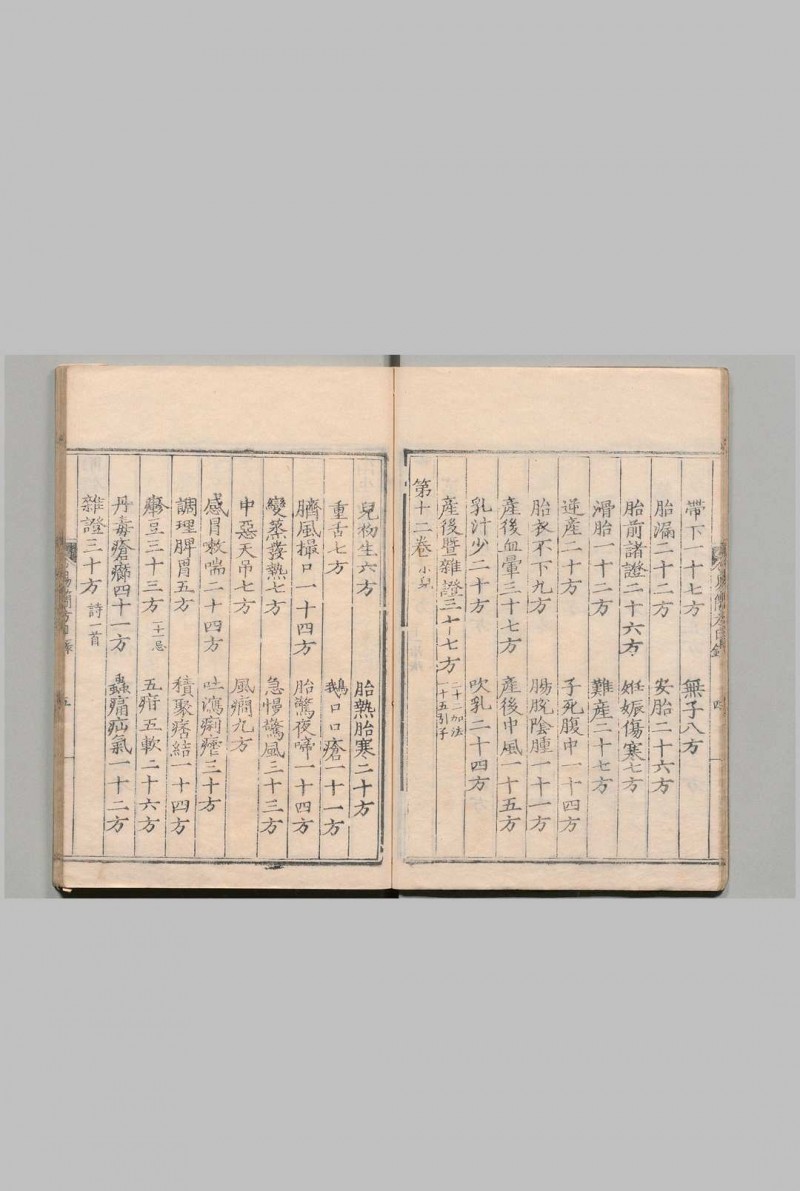 帶下一十七方 無子八方
胎漏二十二方 安胎二十六方
胎前諸證二十六方 姙娠傷寒七方
滑胎一十二方 難產二十七方
逆產二十方 子死腹中一十四方
胎衣不下九方 腸脫陰腫一十一方
產後血暈三十七方 產後中風一十五方
乳汁少二十方 吹乳二十四方
產後暨雜證三十七方 二十二加法 一十五引子
第十二卷 小兒
兒初生六方 胎熱胎寒二十方
重舌七方 鵝口口瘡一十一方
臍風撮口一十四方 胎驚夜啼一十四方
變蒸發熱七方 急慢驚風三十三方
中惡天吊七方 風癎九方
感冒嗽喘二十四方 吐瀉痢瘧三十方
調理脾胃五方 積聚痞結一十四方
瘮豆三十三方 二十一忌 五疳五軟二十六方
丹毒瘡癤四十一方 蟲痛疝氣一十二方
雜證三十方 詩一首